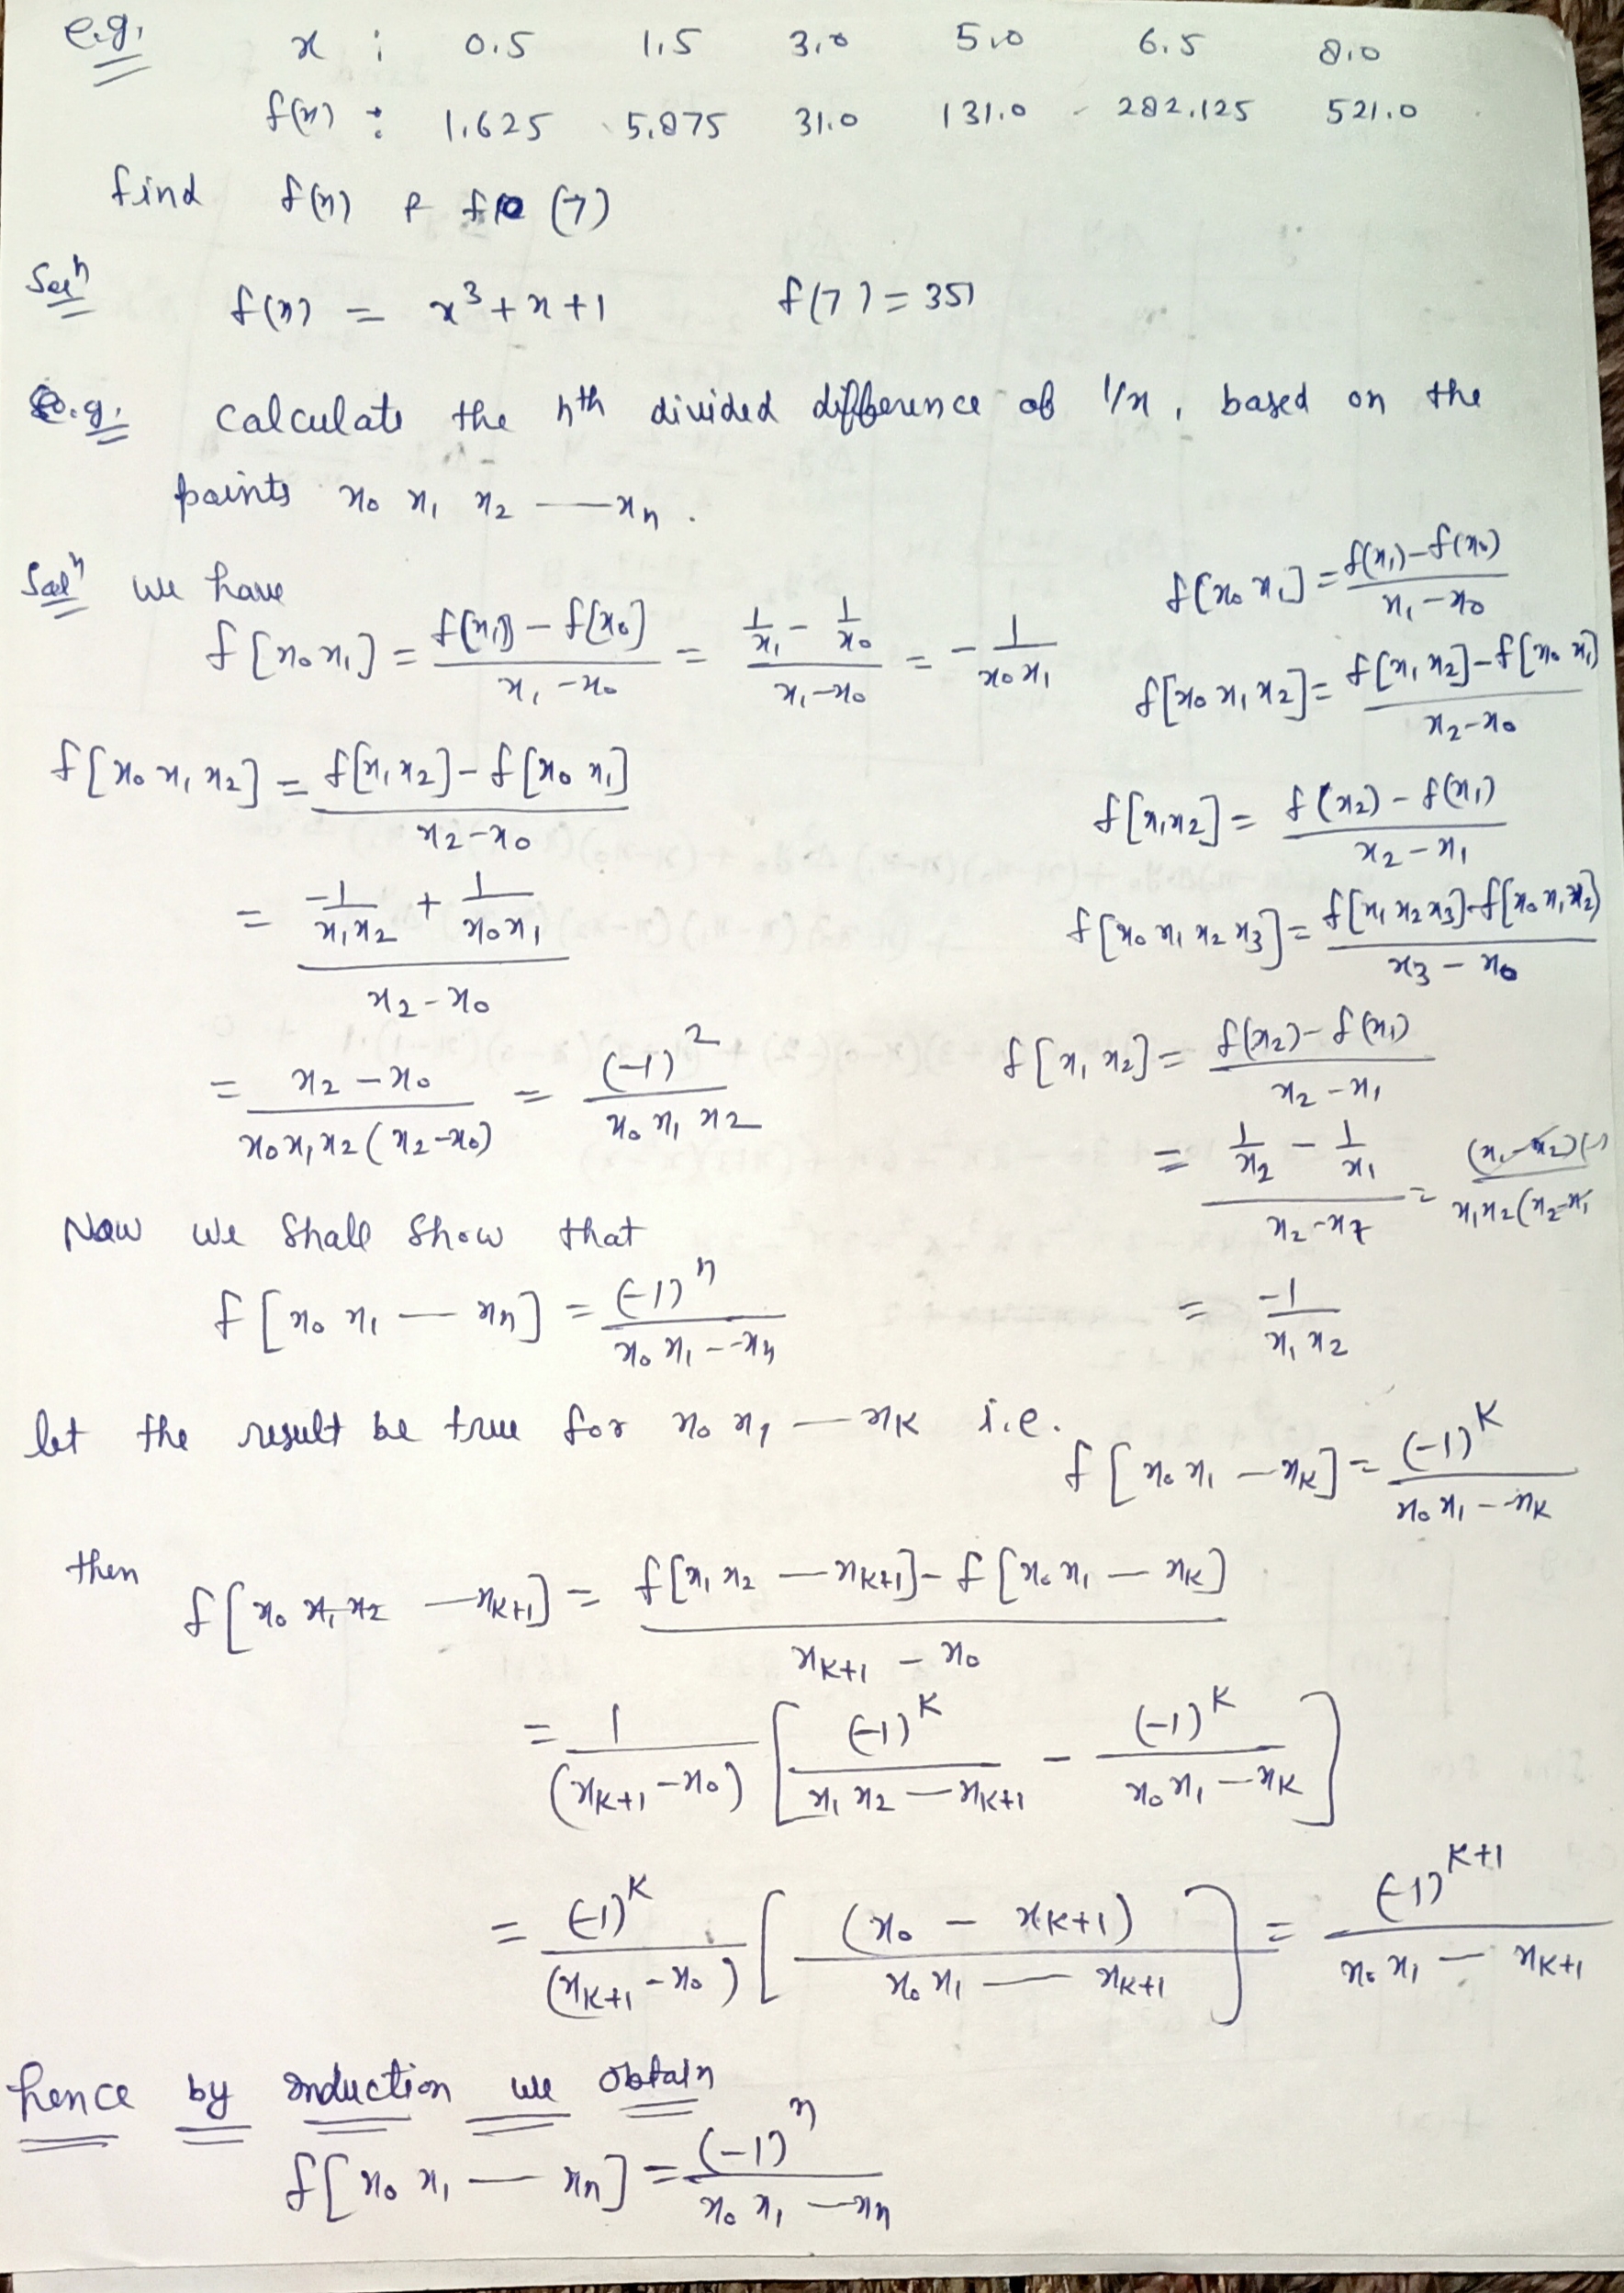 e.g. x : 0.5 1.5 3.0 5.0 6.5 8.0
f(x) : 1.625 5.875 31.0 131.0 282.125 521.0
find f(x) & f (7)
Solⁿ f(x) = x³ + x + 1 f(7) = 351
e.g. Calculate the nth divided difference of 1/x, based on the
points x₀ x₁ x₂ — xₙ.
Solⁿ we have
f[x₀ x₁] = (f[x₁] − f[x₀])/(x₁ − x₀) = (1/x₁ − 1/x₀)/(x₁ − x₀) = − 1/(x₀ x₁)
f[x₀ x₁ x₂] = (f[x₁ x₂] − f[x₀ x₁])/(x₂ − x₀)
= (−1/(x₁ x₂) + 1/(x₀ x₁))/(x₂ − x₀)
= (x₂ − x₀)/(x₀ x₁ x₂ (x₂ − x₀)) = (−1)²/(x₀ x₁ x₂)
f[x₀ x₁] = (f(x₁) − f(x₀))/(x₁ − x₀)
f[x₀ x₁ x₂] = (f[x₁ x₂] − f[x₀ x₁])/(x₂ − x₀)
f[x₁ x₂] = (f(x₂) − f(x₁))/(x₂ − x₁)
f[x₀ x₁ x₂ x₃] = (f[x₁ x₂ x₃] − f[x₀ x₁ x₂])/(x₃ − x₀)
f[x₁ x₂] = (f(x₂) − f(x₁))/(x₂ − x₁)
= (1/x₂ − 1/x₁)/(x₂ − x₁) = (x₁ − x₂)(-1)/(x₁ x₂ (x₂ − x₁
= −1/(x₁ x₂)
Now we shall show that
f[x₀ x₁ — xₙ] = (−1)ⁿ/(x₀ x₁ -- xₙ)
let the result be true for x₀ x₁ — xK i.e.
f[x₀ x₁ — xK] = (−1)^K/(x₀ x₁ -- xK)
then f[x₀ x₁ x₂ — xK+1] = (f[x₁ x₂ — xK+1] − f[x₀ x₁ — xK])/(xK+1 − x₀)
= 1/(xK+1 − x₀) [(−1)^K/(x₁ x₂ — xK+1) − (−1)^K/(x₀ x₁ — xK)]
= (−1)^K/(xK+1 − x₀) [(x₀ − xK+1)/(x₀ x₁ — xK+1)] = (−1)^K+1/(x₀ x₁ — xK+1)
hence by induction we obtain
f[x₀ x₁ — xₙ] = (−1)ⁿ/(x₀ x₁ — xₙ)